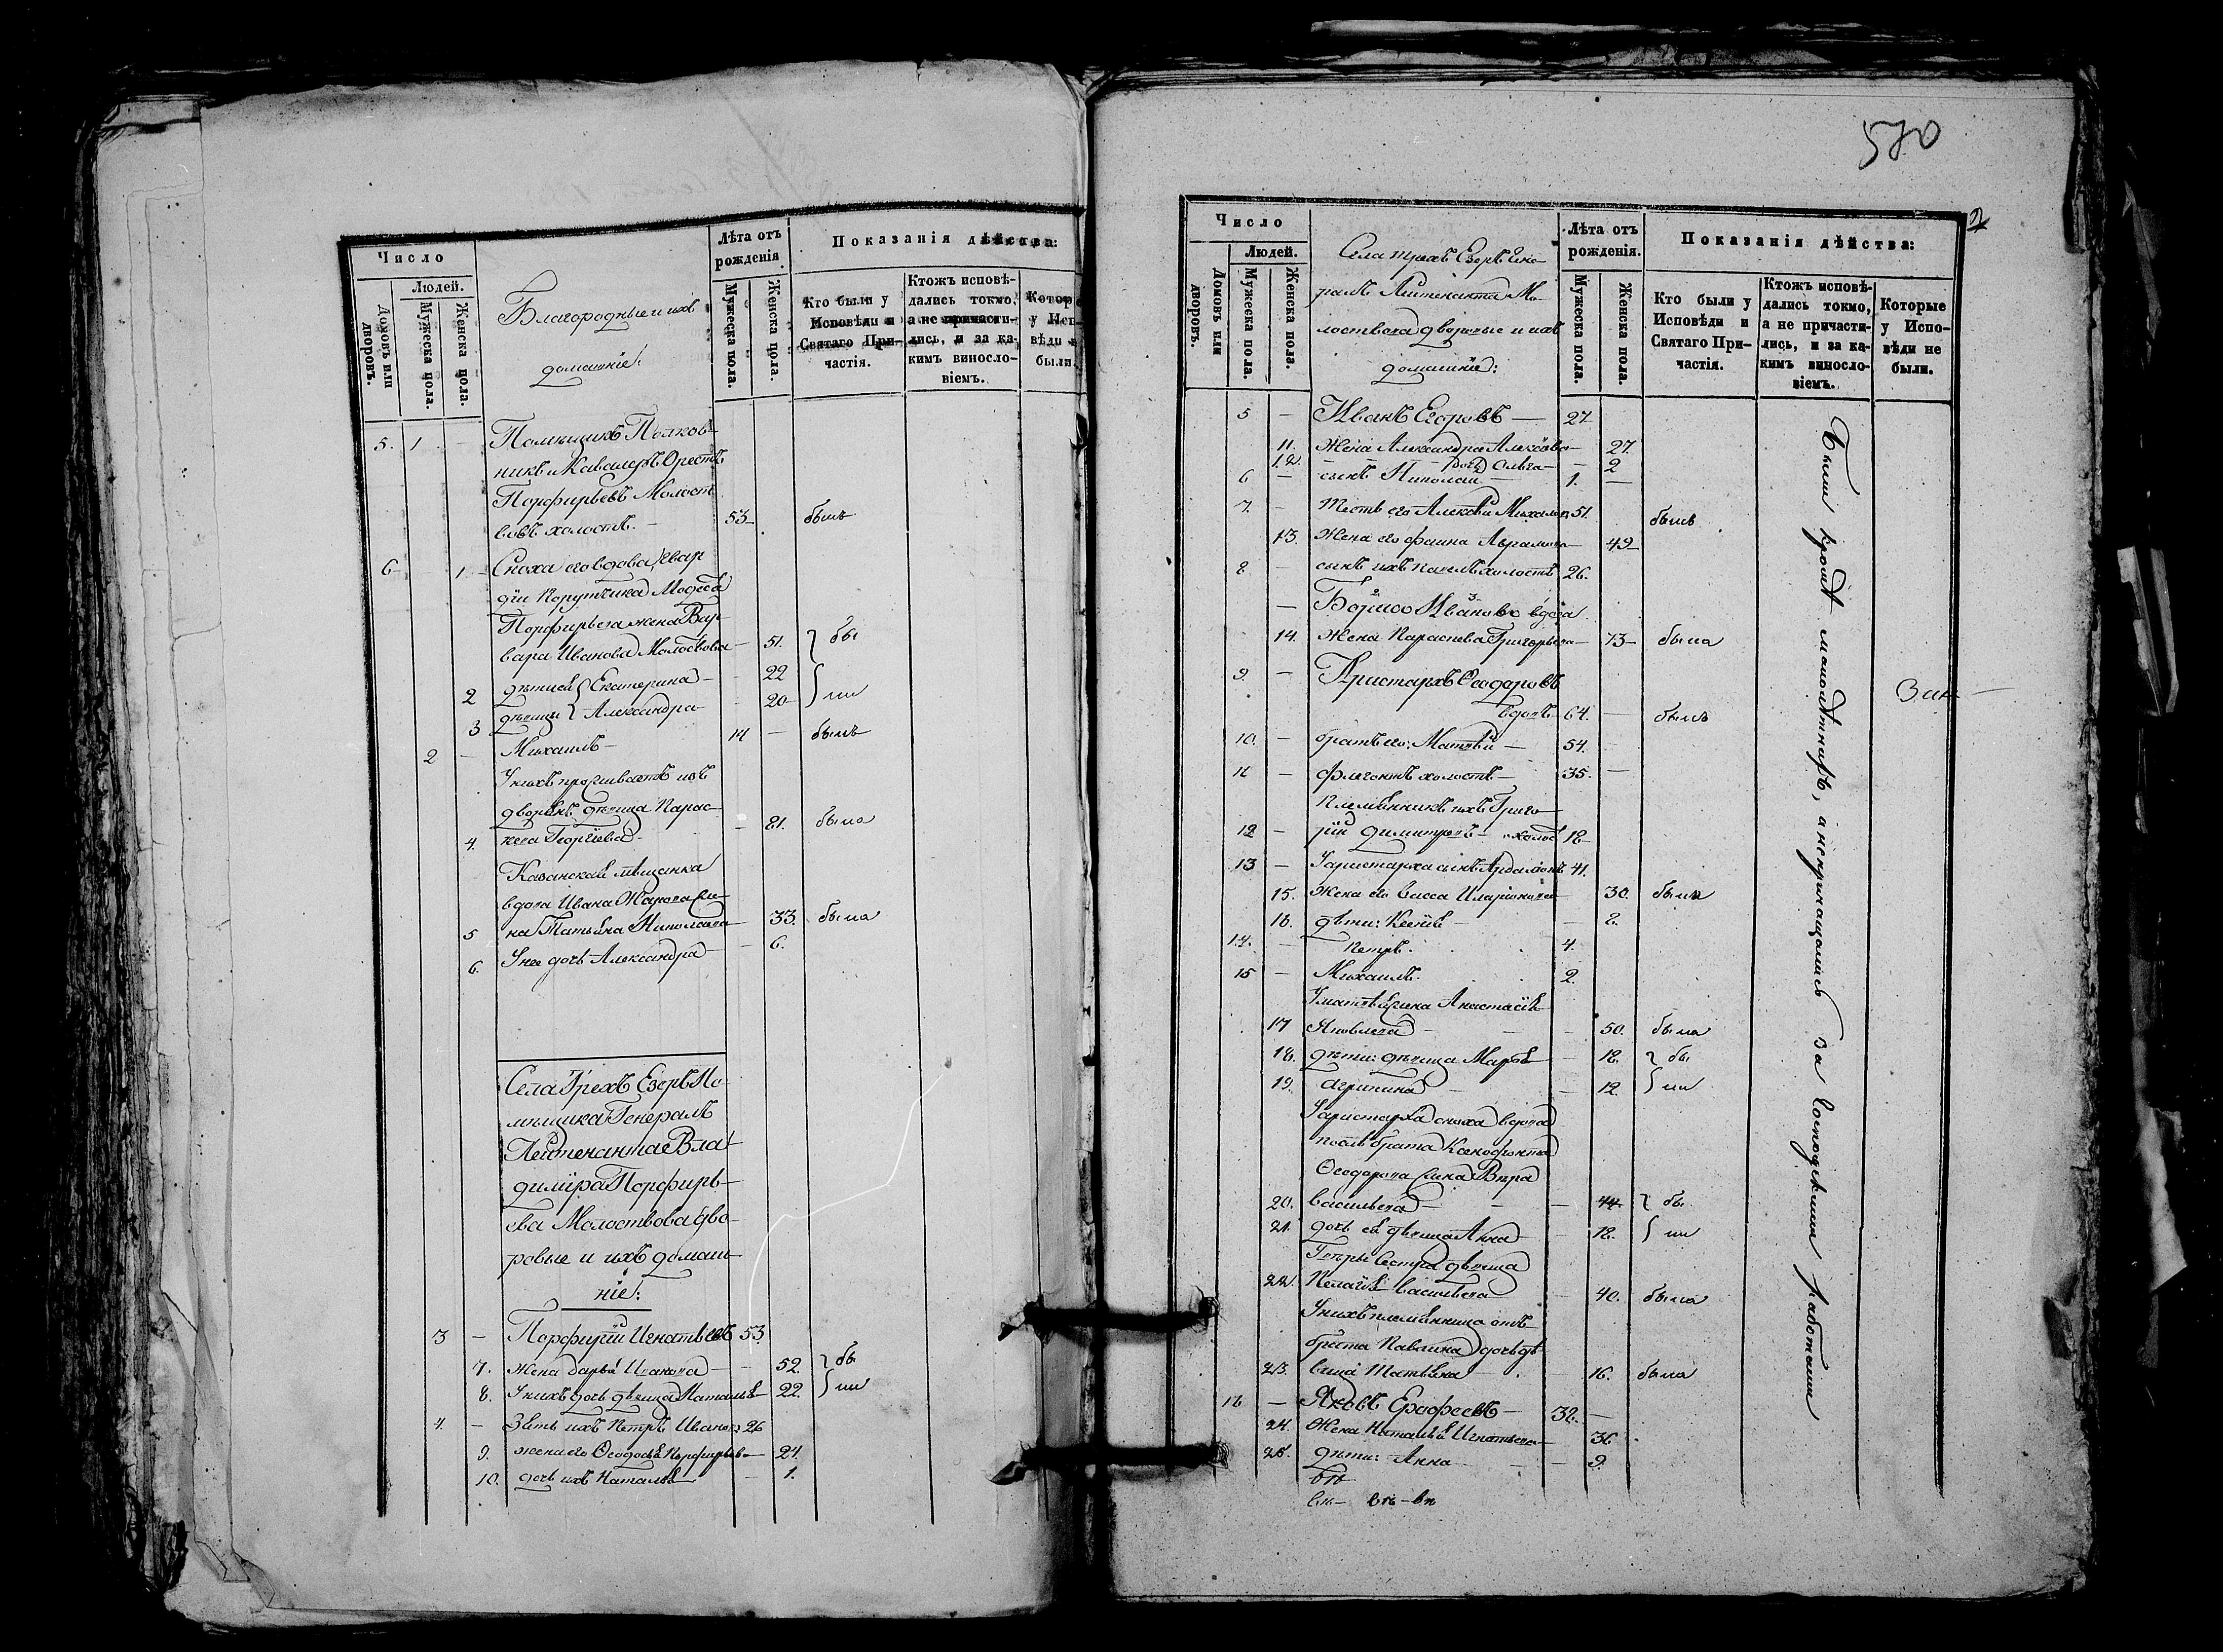 Число
Людей.
Домовъ или дворовъ.
Мужеска пола.
Женска пола.
Благородные и ихъ
домашніе:
Лѣта отъ рожденія
Мужеска пола.
Женска пола.
Показанія дѣйства:
Кто были у Исповѣди и Святаго Причастія.
Ктожъ исповѣдались токмо, а не причастились, и за какимъ винословіемъ.
Которые у Исповѣди не были.
5. 1 — Помѣщикъ Полков-
никъ и Кавалеръ Орестъ
Порфирьевъ Молост-
вовъ холостъ. — 53 былъ
6 1 Сноха его вдова Гвар-
діи Порутчика Модеста
Порфирьева жена Вар-
вара Иванова Молоствова — 51. } бы
2 дѣти ея { Екатерина — 22
3 дѣвицы { Александра — 20 } ли
2 — Михаилъ — 14 — былъ
У нихъ проживаетъ изъ
дворянъ дѣвица Парас-
4. кева Георгіева — 81. была
Казанская мѣщанка
вдова Ивана
5 на Татьяна Николаева 33. была
6. У нее дочь Александра — 6.
Села Трехъ Езеръ По-
мѣщика Генералъ
Лейтенанта Вла-
диміра Порфирь-
ева Молоствова дво-
ровые и ихъ домаш-
ніе:
3 — Порфирій Игнатьевъ 53.
7. Жена Дарья Иванова — 52. } бы
8. У нихъ дочь дѣвица Наталья 22. } ли
4. — Зять ихъ Петръ Иванов 26
9. жена его Ѳеодосья Порфирьева 24.
10. дочь ихъ Наталья — 1.
580
2
Число
Людей.
Домовъ или дворовъ.
Мужеска пола.
Женска пола.
Села Трехъ Езеръ Гене-
ралъ Лейтенанта Мо-
лоствова дворовые и ихъ
домашніе:
Лѣта отъ рожденія.
Мужеска пола.
Женска пола.
Показанія дѣйства:
Кто были у Исповѣди и Святаго Причастія.
Ктожъ исповѣдались токмо, а не причастились, и за какимъ винословіемъ.
Которые у Исповѣди не были.
5 — Иванъ Егоровъ — 27
11. Жена Александра Алексѣева — 27.
12. дочь Ольга — 2
6 — сынъ Николай — 1. —
7. — Тесть его Алексѣй Михайлов 51. былъ
13. Жена его Фаина Аврамова — 49
8 — сынъ ихъ Павелъ холостъ 26.
— Бориса Иванова вдова
14. Жена Параскева Григорьева — 73 — была
9. — Аристархъ Ѳеодоровъ
вдовъ 64. — былъ
10. — братъ его: Матвѣй — 54. —
11 — Флегонтъ холостъ — 35. —
Племянникъ ихъ Григо-
12 — рій Димитріевъ — холос 18
13 — У Аристарха сынъ Ардаліонъ 41.
15. Жена его Васса Иларіонова 30. были
16. дѣти: Ксенія — 8.
14. — Петръ. 4.
15 — Михаилъ. 2.
У Матвѣя жена Анастасія
17 Яковлева — 50. была
18. дѣти: дѣвица Марья — 18. } бы
19. Агрипина — 12. } ли
У Аристарха сноха вдова
послѣ брата Ксенофонта
Ѳеодорова сына Вѣра
20. Васильева — 44 } бы
21. дочь ея дѣвица Анна — 18. } ли
сестра дѣвица
22. Пелагія Васильева — 40. была
У нихъ племянница отъ
брата Павлина дочь дѣ-
23. вица Татьяна — 16. была
16 — Яковъ Ерофеевъ — 38. —
24. Жена Наталья Игнатьева 36
25. дѣти: Анна — 9.
Были кромѣ малолѣтнихъ, а непричащались за Господскими работами